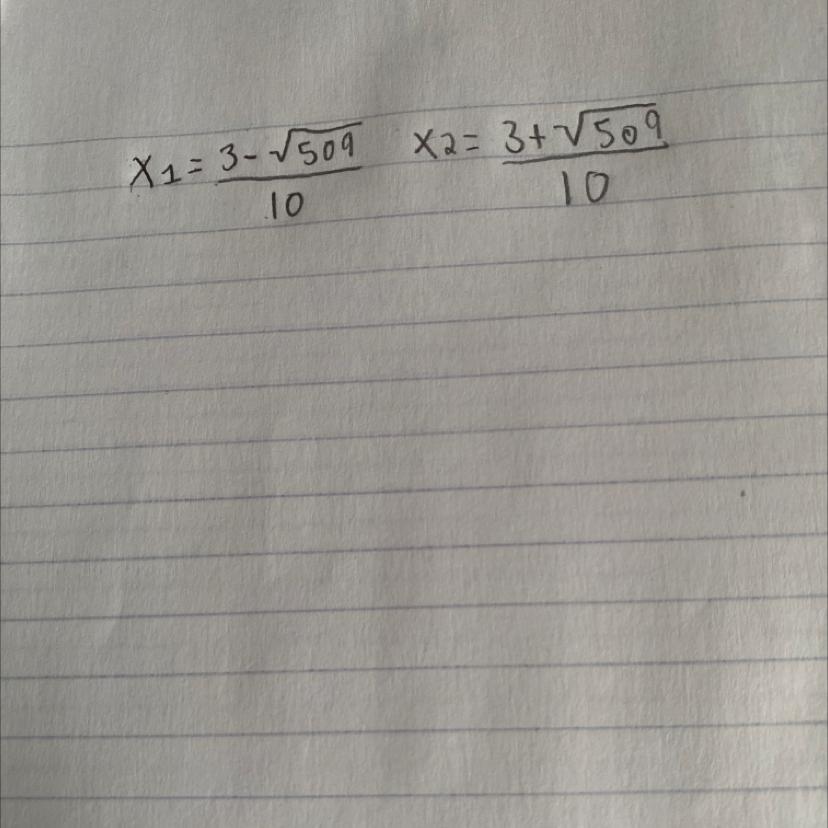 x1 = 3-√509/10 x2 = 3+√509/10